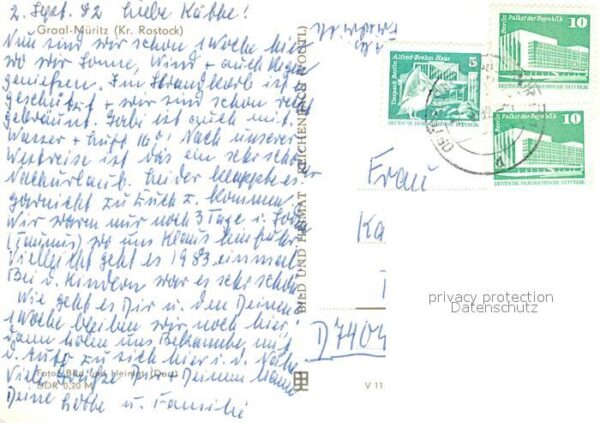 2. Sept. 82 Liebe Käthe!
Graal-Müritz (Kr. Rostock)
Nun sind wir schon 1 Woche hier
wo wir Sonne, Wind + auch Regen
genießen. Im Strandkorb ist es
geschützt + wir sind schon recht
gebräunt. Gabi ist auch mit.
Wasser + Luft 16°! Nach unserer
Westreise ist das ein sehr schöner
Nachurlaub. Leider klappte es
garnicht zu Euch z. kommen.
Wir waren nur noch 3 Tage i.
(Taunus) wo uns Klaus hinfuhr
Vielleicht geht es 1983 einmal
Bei d. Kindern war es sehr schön
Wie geht es Dir u. den Deinen
1 Woche bleiben wir noch hier,
dann holen uns Bekannte mit
d. Auto zu sich hier i. d. Nähe
Viele Grüße Dir + Deinem
Deine u. Familie
Foto: Bild und Heimat
DDR 0,20 M
BILD UND HEIMAT REICHENBACH (VOGTL)
V 11
Tierpark Berlin Alfred-Brehm-Haus 5
DEUTSCHE DEMOKRATISCHE REPUBLIK
Berlin Palast der Republik 10
DEUTSCHE DEMOKRATISCHE REPUBLIK
Berlin Palast der Republik 10
DEUTSCHE DEMOKRATISCHE REPUBLIK
Frau
Ka
D 7404
privacy protection
Datenschutz